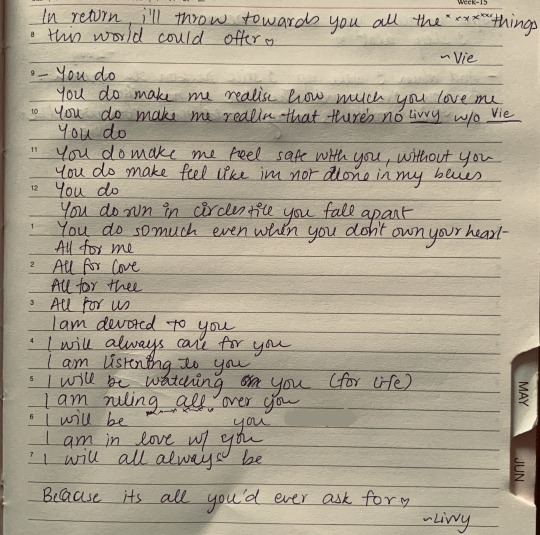 Week-15
In return, i'll throw towards you all the "xxxxxx" things
8 this world could offer♡
~Vie
9 – You do
You do make me realise how much you love me
10 You do make me realise that there's no Livvy w/o Vie
You do
11 You do make me feel safe with you, without you
You do make feel like im not alone in my blues
12 You do
You do run in circles till you fall apart
1 You do so much even when you don't own your heart-
All for me
2 All for love
All for thee
3 All for us
I am devoted to you
4 I will always care for you
I am listening to you
5 I will be watching you (for life)
I am ruling all over you
6 I will be you
I am in love w/ you
7 I will all always be
Because its all you'd ever ask for♡
~Livvy
MAY
JUN